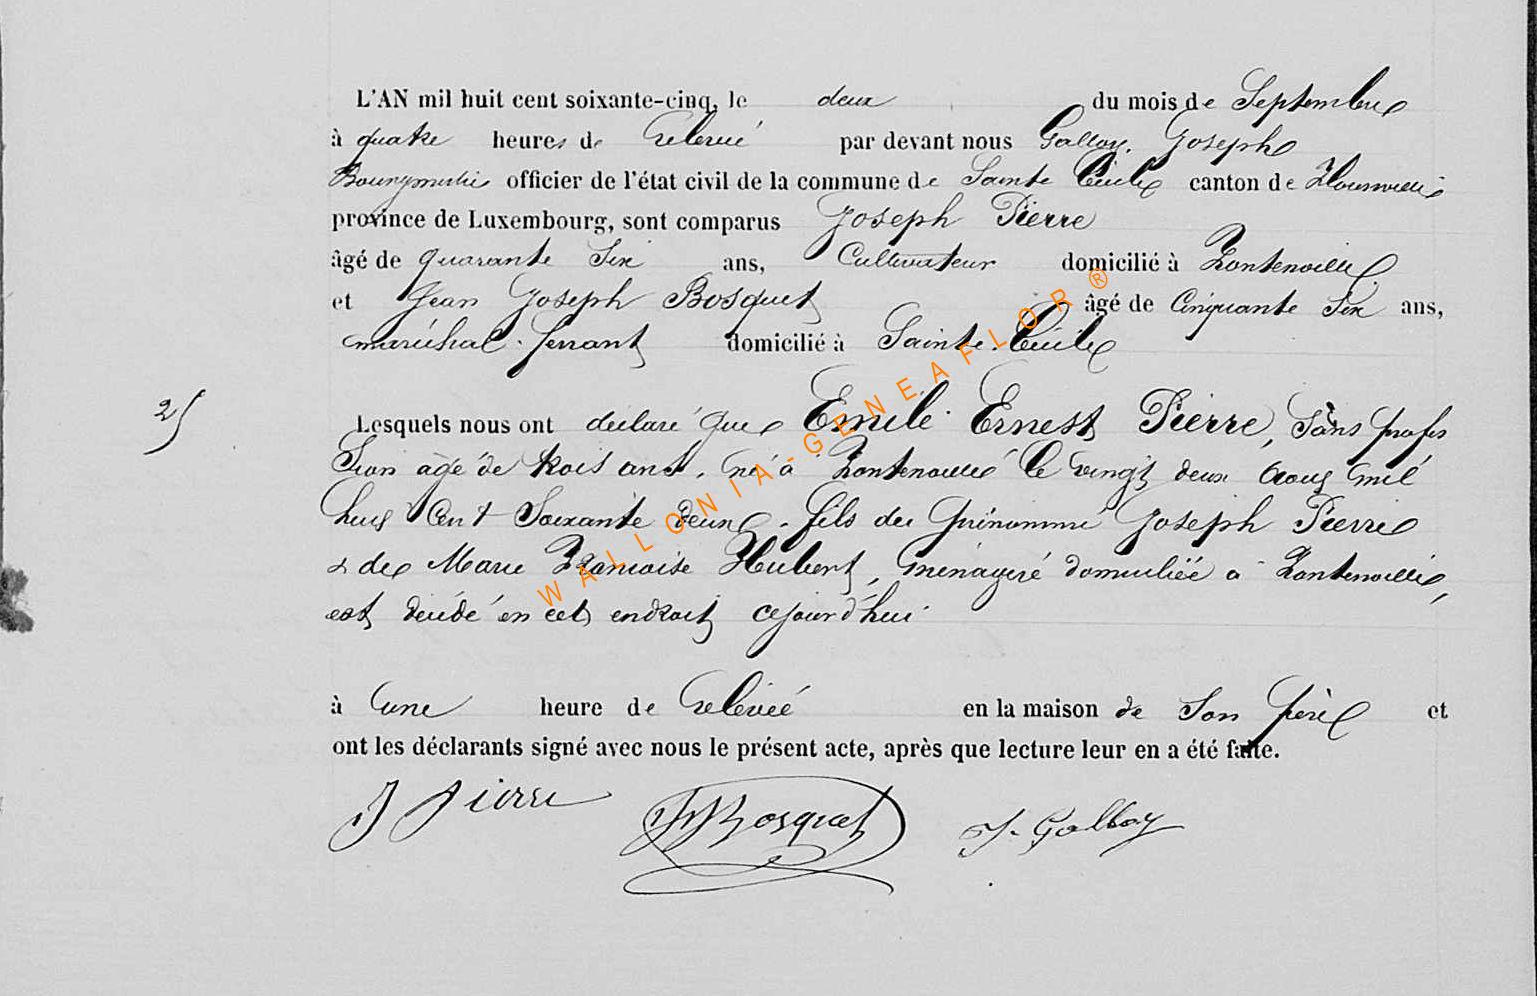 L'AN mil huit cent soixante-cinq, le deux du mois de Septembre
à quatre heures de relevé par devant nous Galloy, Joseph
Bourgmestre officier de l'état civil de la commune de Sainte Cécile canton de Florenville
province de Luxembourg, sont comparus Joseph Pierre
âgé de quarante Six ans, Cultivateur domicilié à Fontenoille
et Jean Joseph Bosquet âgé de Cinquante Six ans,
maréchal-ferrant domicilié à Sainte-Cécile
25
Lesquels nous ont déclaré que Emile Ernest Pierre, Sans profes
Sion âgé de trois ans, né à Fontenoille le vingt deux aout mil
huit Cent Soixante deux, fils du prénommé Joseph Pierre
& de Marie Françoise Hubert, ménagère domiciliée à Fontenoille,
est décédé en cet endroit cejourd'hui
à une heure de relevée en la maison de Son père et
ont les déclarants signé avec nous le présent acte, après que lecture leur en a été faite.
J Pierre JJ Bosquet J. Galloy
WALLONIA-GENEAFLOR ®